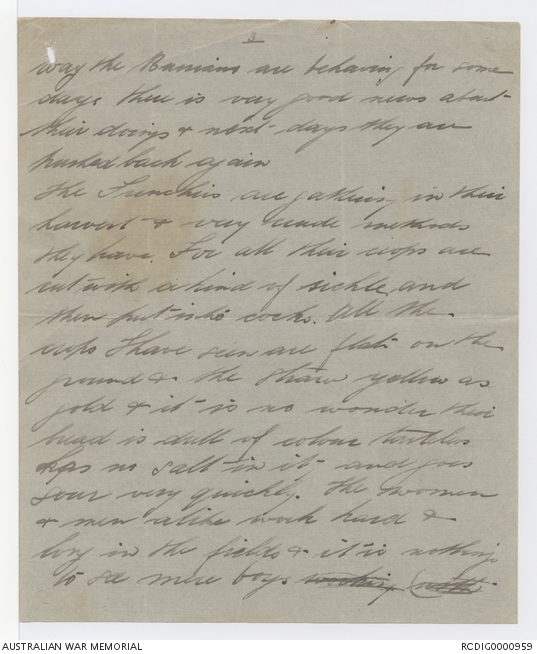 3
way the Russians are behaving for some
days there is very good news about
their doings & next days they are
pushed back again
The Frenchies are gathering in their
harvest & very crude methods
they have. For all their crops are
cut with a kind of sickle and
then put into cocks. All the
crops I have seen are flat on the
ground & the straw yellow as
gold & it is no wonder their
bread is dull of colour tasteless
has no salt in it and goes
sour very quickly. The women
& men alike work hard &
long in the fields & it is nothing
to see mere boys working with
AUSTRALIAN WAR MEMORIAL
RCDIG0000959